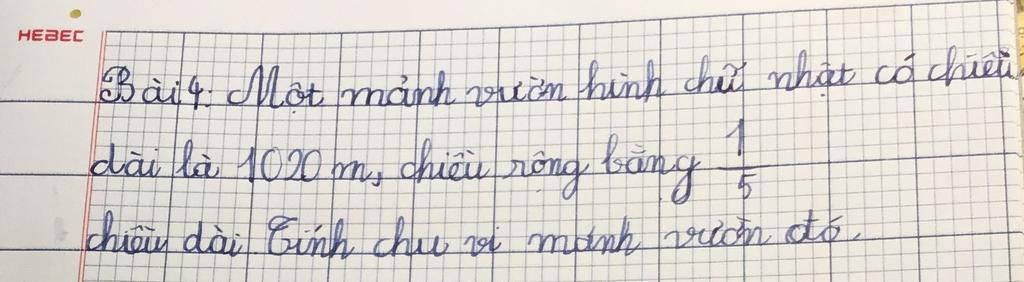 HEBEC
Bài 4: Một mảnh vườn hình chữ nhật có chiều
dài là 1020 m, chiều rộng bằng 1/5
chiều dài. Tính chu vi mảnh vườn đó.